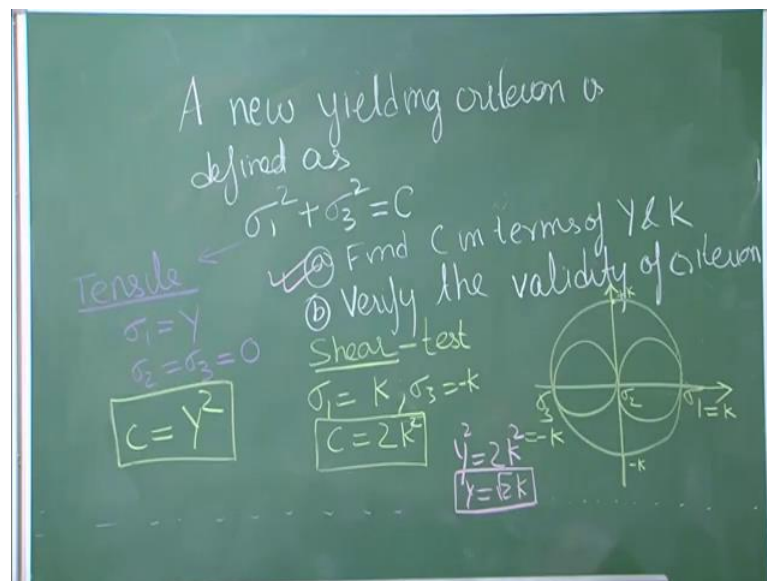 A new yielding criterion is
defined as
σ₁² + σ₃² = C
ⓐ Find C in terms of Y & K
ⓑ Verify the validity of criterion
Tensile
σ₁ = Y
σ₂ = σ₃ = 0
C = Y²
Shear-test
σ₁ = K, σ₃ = -k
C = 2k²
Y² = 2k²
Y = √2k
k
σ₃
σ₂
σ₁ = k
= -k
-k